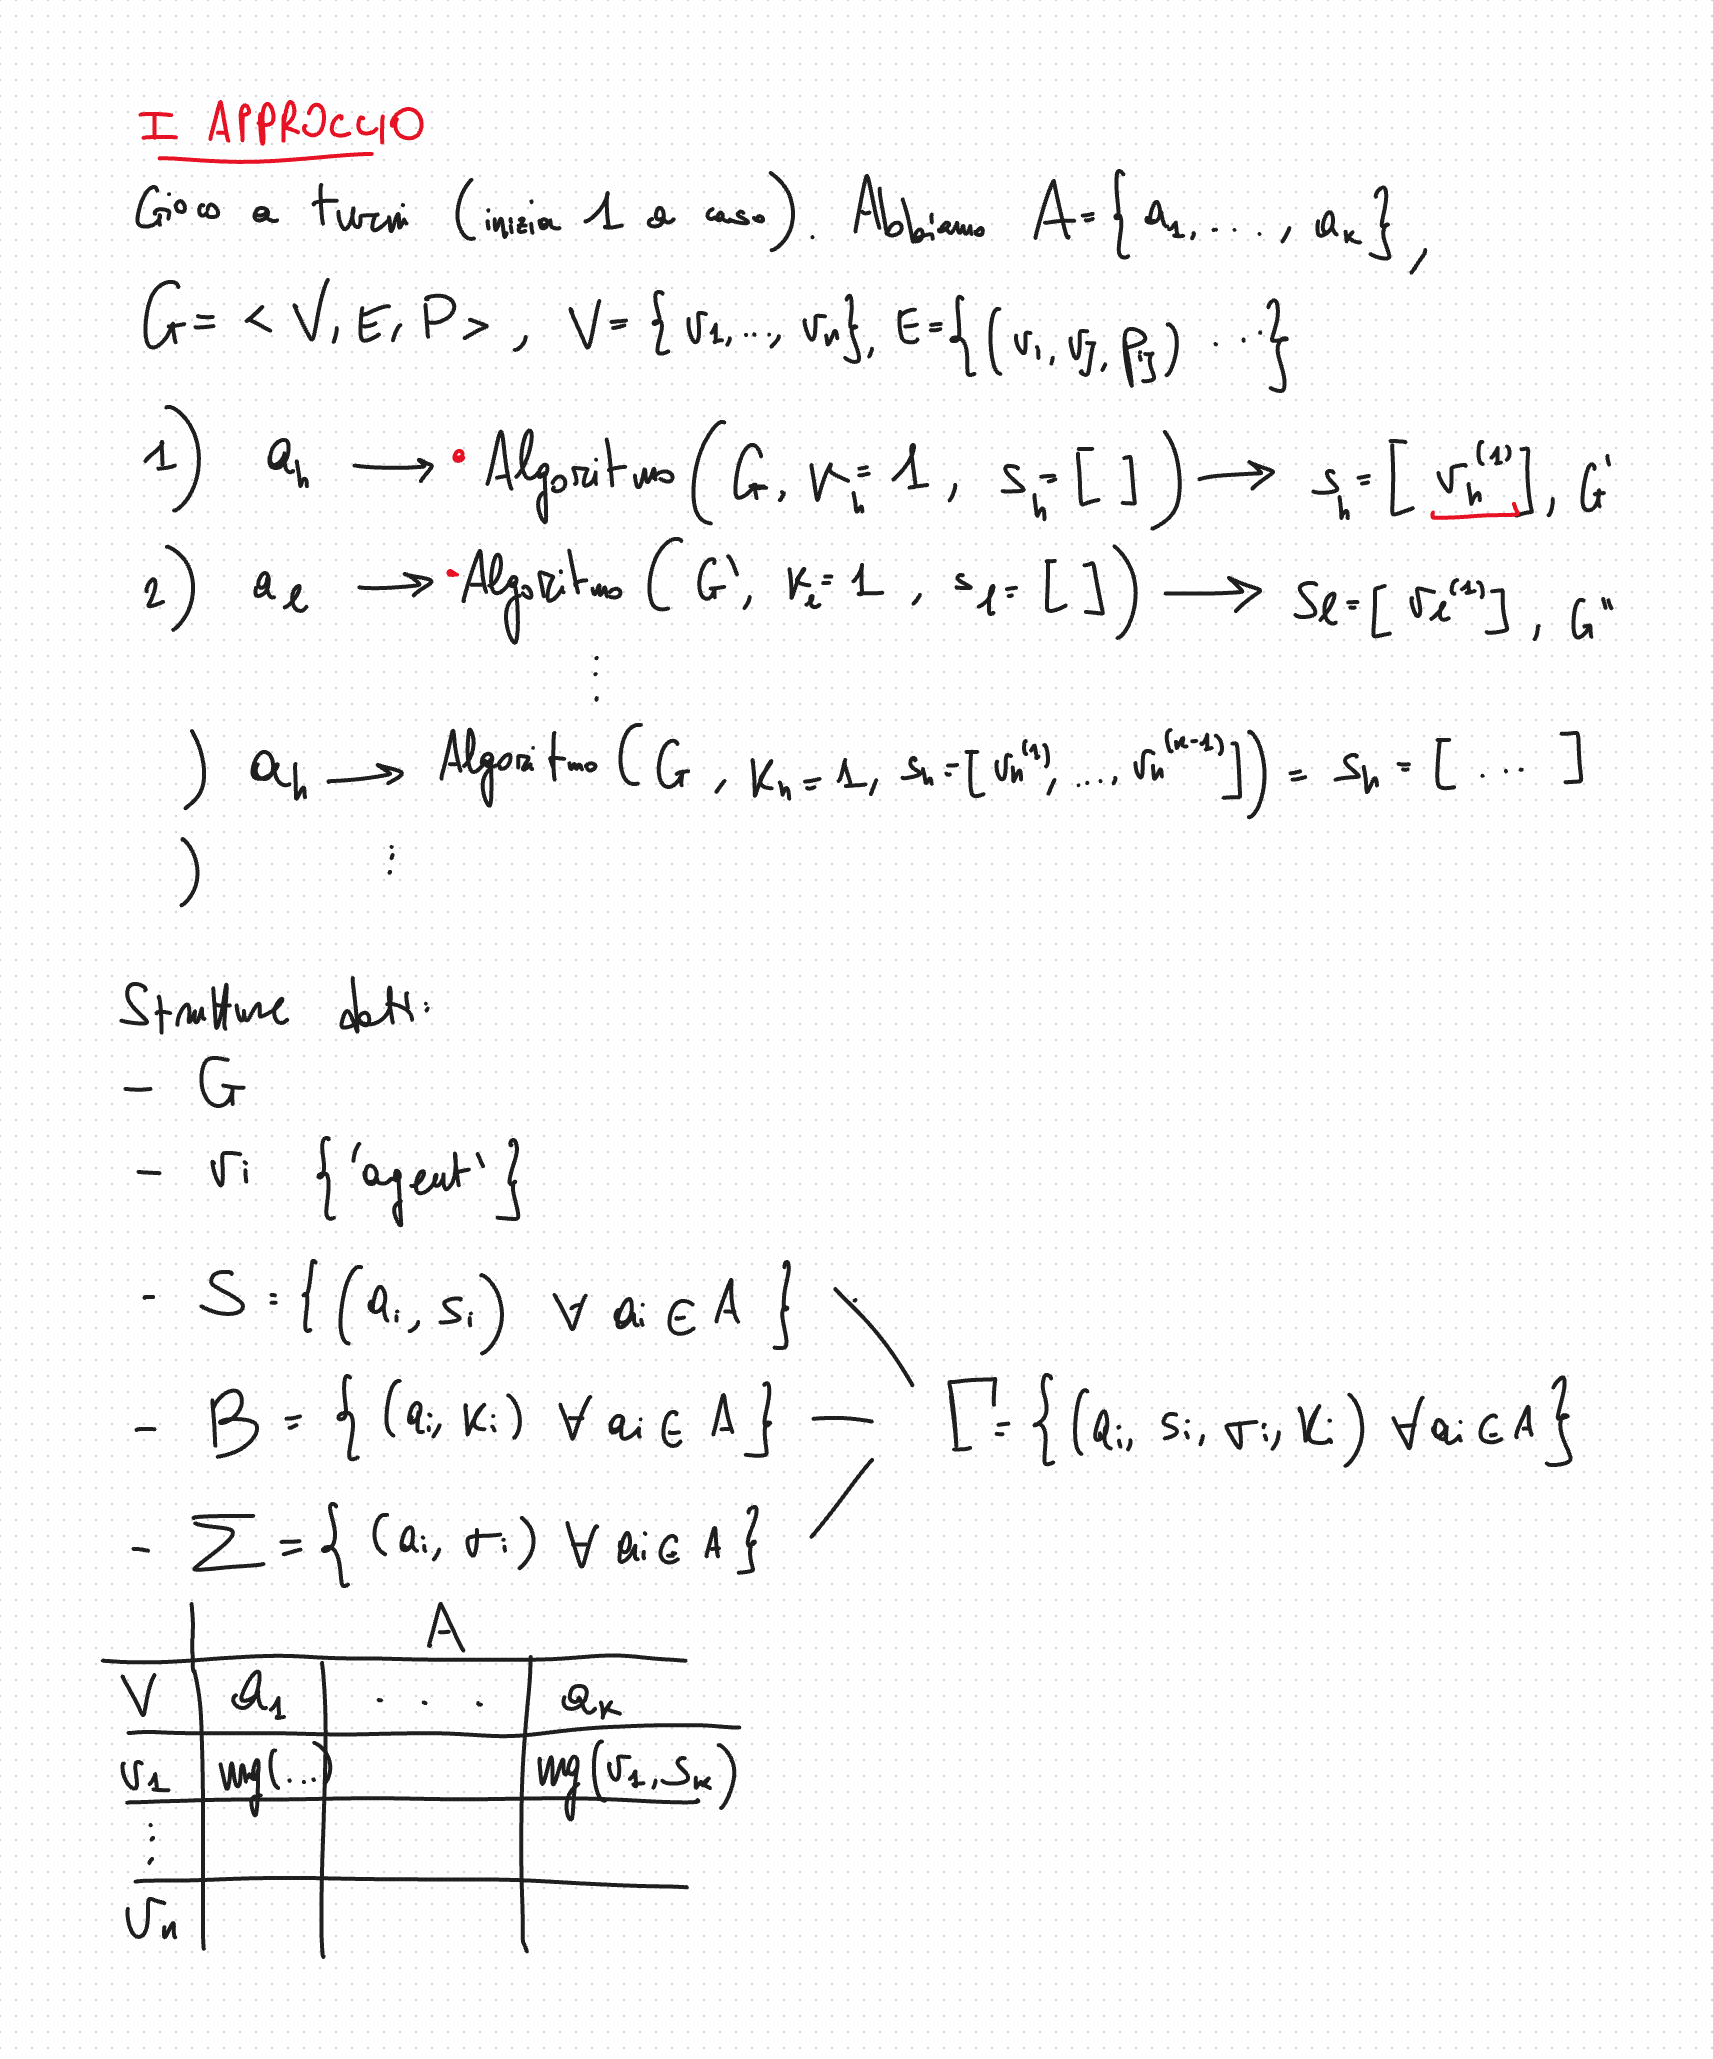 I APPROCCIO
Gioco a turni (inizia 1 a caso). Abbiamo A = {a₁, ...., aₖ},
G = < V, E, P > , V = {v₁, ..., vₙ}, E = {(vᵢ, vⱼ, pᵢⱼ) ...}
1) aₕ → • Algoritmo (G, kₕ = 1, sₕ = [ ]) → sₕ = [vₕ⁽¹⁾], G'
2) aₗ → • Algoritmo (G', kₗ = 1, sₗ = [ ]) → sₗ = [vₗ⁽¹⁾], G"
⋮
) aₕ → Algoritmo (G, kₕ = 1, sₕ = [vₕ⁽¹⁾, ..., vₕ⁽ᵏ⁻¹⁾]) = sₕ = [...]
) ⋮
Strutture dati:
- G
- vᵢ {'agent'}
- S = {(aᵢ, sᵢ) ∀ aᵢ ∈ A}
- B = {(aᵢ, kᵢ) ∀ aᵢ ∈ A} — Γ = {(aᵢ, sᵢ, σᵢ, kᵢ) ∀ aᵢ ∈ A}
- Σ = {(aᵢ, σᵢ) ∀ aᵢ ∈ A}
A
V a₁ ... aₖ
v₁ mg(...) mg(v₁, sₖ)
⋮
vₙ